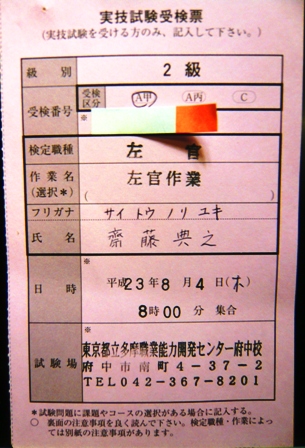 実技試験受検票
(実技試験を受ける方のみ、記入して下さい。)
級別 2級
受検番号 受検区分 A甲 A丙 C
※
検定職種 左官
作業名(選択*) 左官作業
( )
フリガナ サイトウノリユキ
氏名 齋藤典之
※
日時 平成23年8月4日(木)
8時00分集合
※
試験場 東京都立多摩職業能力開発センター府中校
府中市南町4-37-2
TEL042-367-8201
*試験問題に課題やコースの選択がある場合に記入する。
○ 裏面の注意事項を良く読んで下さい。検定職種・作業によっては別紙の注意事項があります。